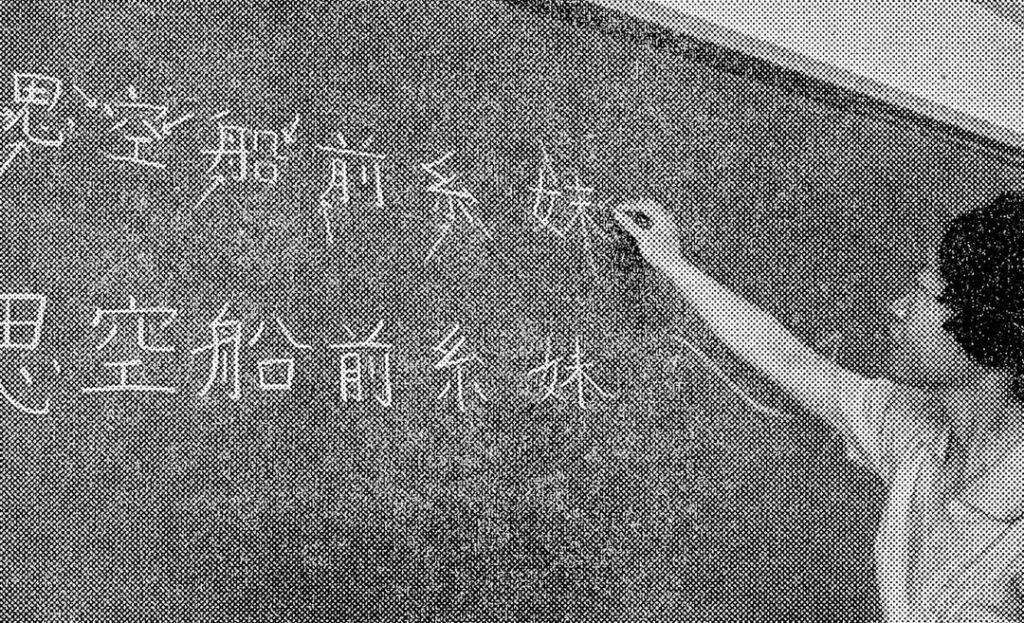 思空船前糸妹
思空船前糸妹